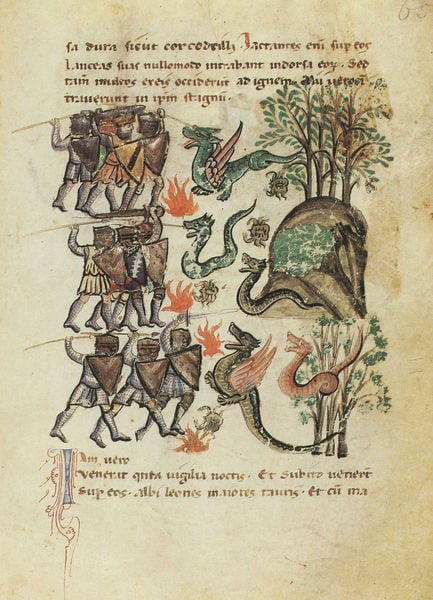 65
sa dura sicut corcodrilli. Jactantes eni sup eos
lanceas suas nullomodo intrabant indorsa eoꝝ. Sed
tam multos ex eis occiderūt ad ignem. Alii
traverunt in ipm stagnū.
Jam vero
venerat qnta vigilia noctis. Et subito venierēt
sup eos. Albi leones maiores tauris. Et cū ma